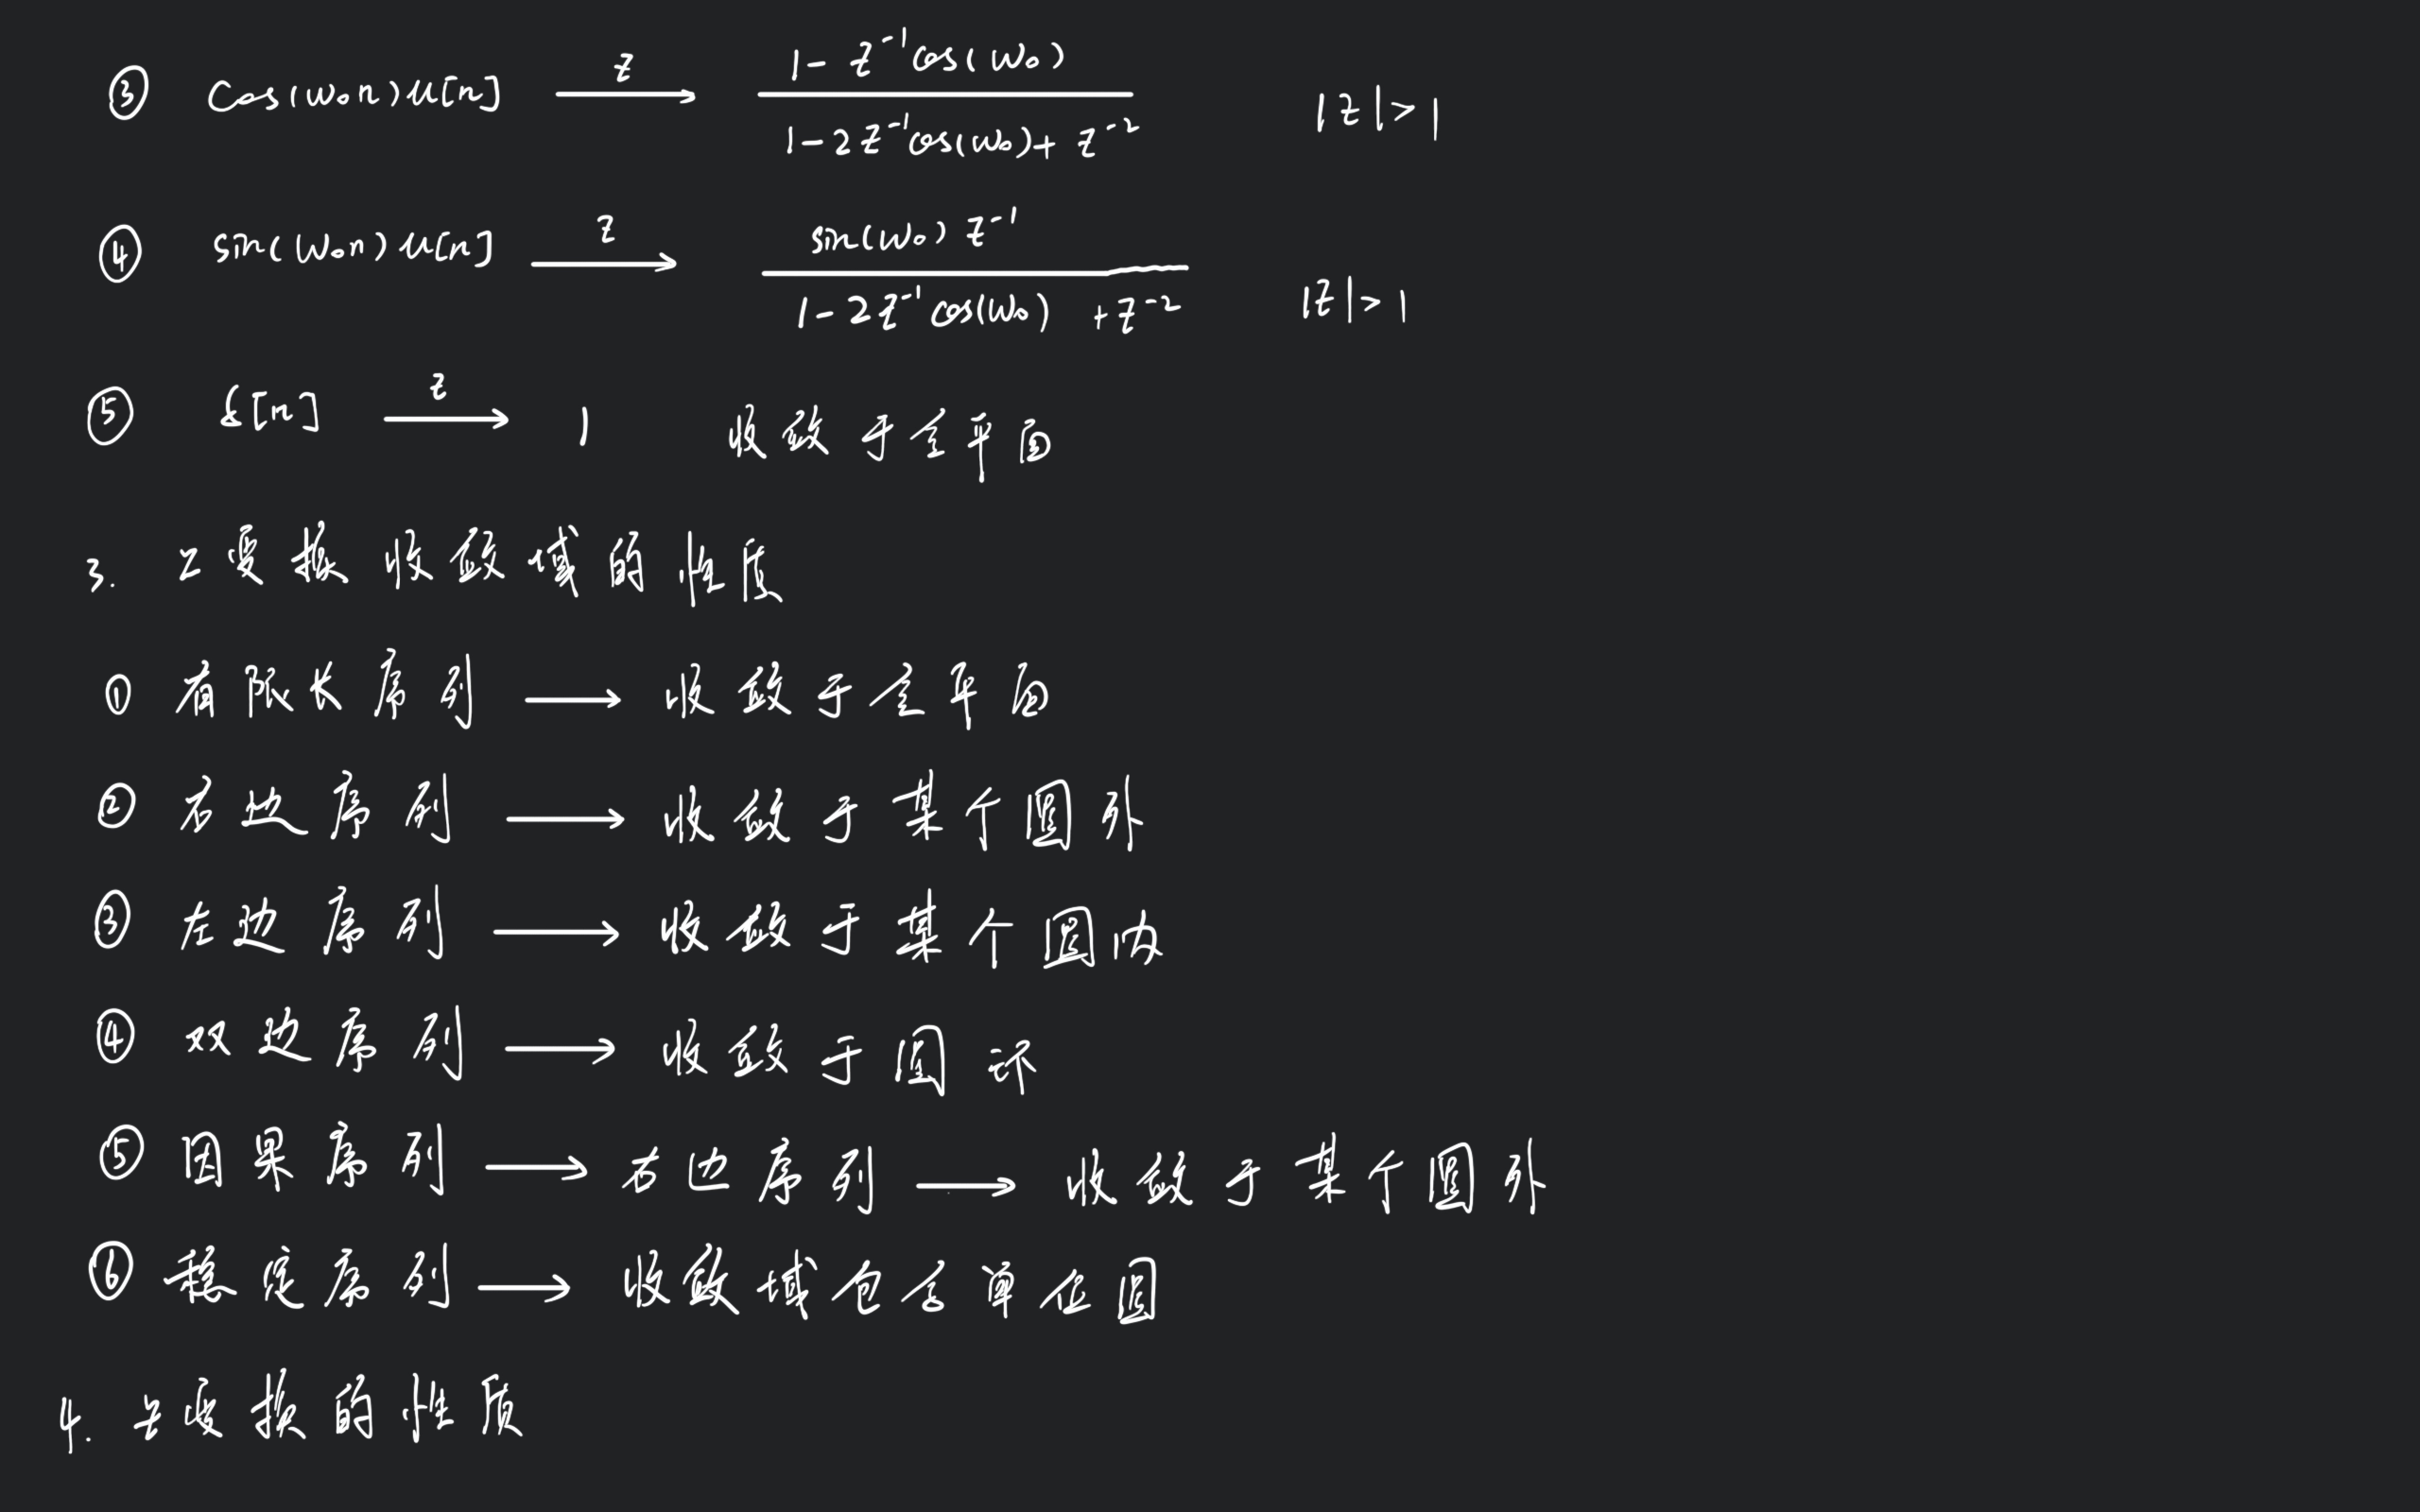 ③ cos(ω₀n)u[n] —z→ (1 - z⁻¹cos(ω₀)) / (1 - 2z⁻¹cos(ω₀) + z⁻²) |z|>1
④ sin(ω₀n)u[n] —z→ (sin(ω₀) z⁻¹) / (1 - 2z⁻¹cos(ω₀) + z⁻²) |z|>1
⑤ δ[n] —z→ 1 收敛于全平面
3. Z变换收敛域的性质
① 有限长序列 → 收敛于全平面
② 右边序列 → 收敛于某个圆外
③ 左边序列 → 收敛于某个圆内
④ 双边序列 → 收敛于圆环
⑤ 因果序列 → 右边序列 → 收敛于某个圆外
⑥ 稳定序列 → 收敛域包含单位圆
4. z变换的性质